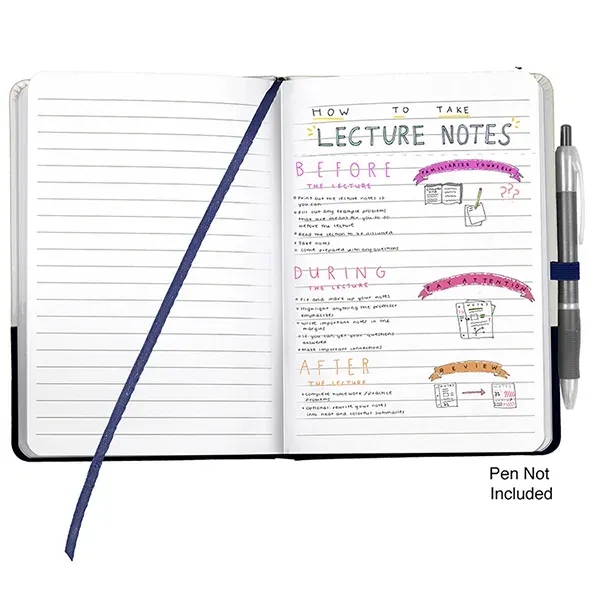 HOW TO TAKE
"LECTURE NOTES"
BEFORE
THE LECTURE
FAMILIARIZE YOURSELF
???
• Print out the lecture notes if
you can
• Fill out any example problems
that are meant for you to do
before the lecture
• Read the section to be discussed
• Take notes
• Come prepared with any questions
DURING
THE LECTURE
PAY ATTENTION
• Fix and mark up your notes
• Highlight anything the professor
emphasizes
• Write important notes in the
margins
• If you can get your questions
answered
• Make important connections
AFTER
THE LECTURE
REVIEW
NOTES
• Complete homework/practice
problems
• Optional: rewrite your notes
into neat and colorful summaries
Pen Not
Included